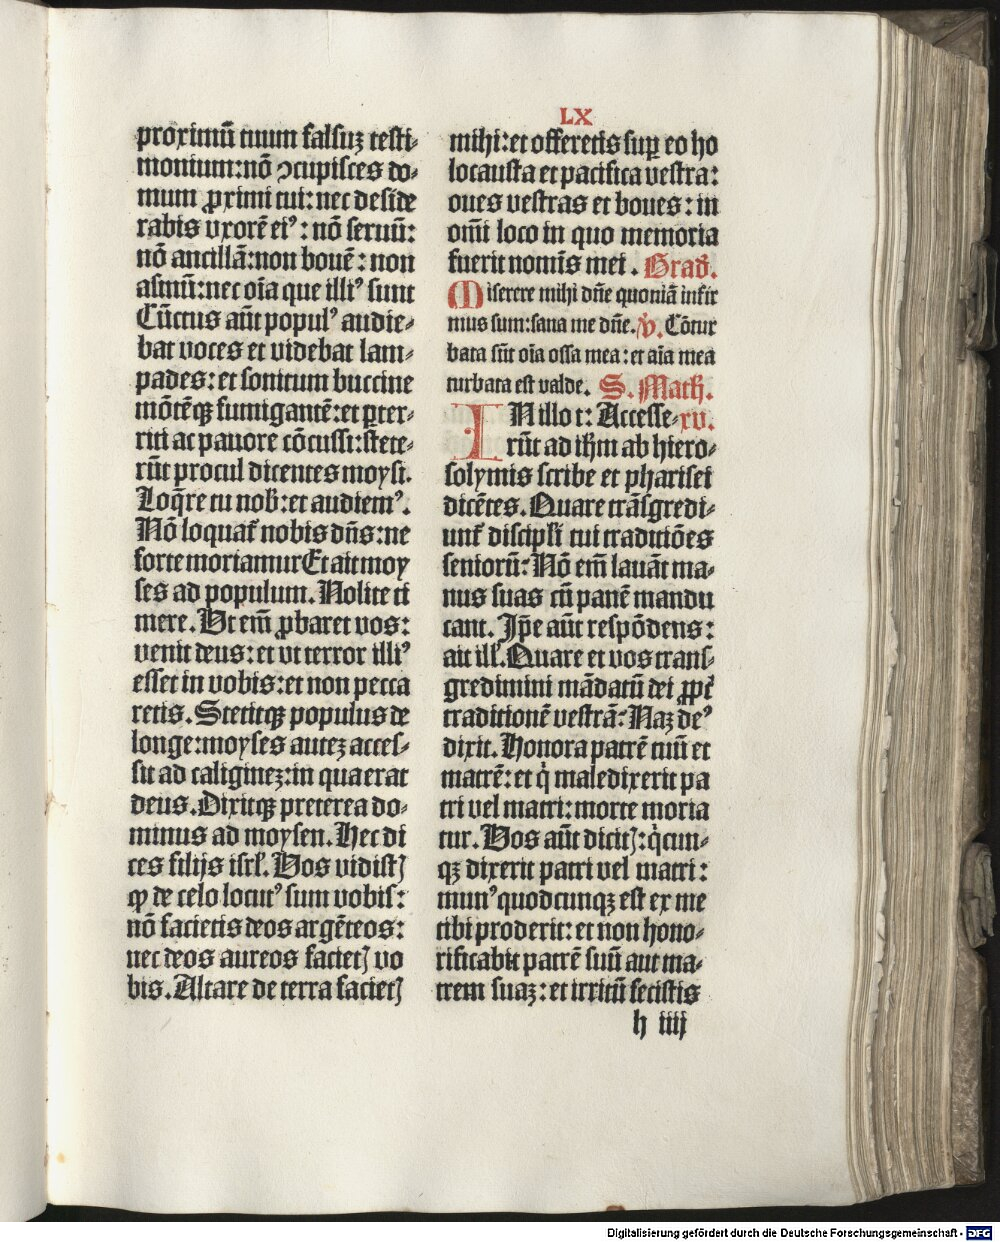 LX
proximū tuum falſuꝫ teſti⸗
monium:nō ꝯcupiſces do⸗
mum ꝓximi tui: nec deſide
rabis vxorē eiꝰ: nō ſeruū:
nō ancillā:non bouē: non
aſinū:nec oīa que illiꝰ ſunt
Cūctus aūt populꝰ audie⸗
bat voces et videbat lam⸗
pades: et ſonitum buccine
mōtēqꝫ fumigantē: et ꝑter⸗
riti ac pauore cōcuſſi: ſtete⸗
rūt procul dicentes moyſi.
Loq̄re tu nob̄: et audiemꝰ.
Nō loquat᷑ nobis dn̄s: ne
forte moriamur Et ait moy
ſes ad populum. Nolite ti
mere. Vt em̄ ꝓbaret vos:
venit deus: et vt terror illiꝰ
eſſet in vobis: et non pecca
retis. Stetitqꝫ populus de
longe: moyſes auteꝫ acceſ⸗
ſit ad caligineꝫ: in qua erat
deus. Dixitqꝫ preterea do⸗
minus ad moyſen. Hec di
ces filijs iſrl̓. Vos vidiſtꝭ
ꝙ de celo locutꝰ ſum vobiſ:
nō facietis deos argēteos:
nec deos aureos facietꝭ vo
bis. Altare de terra facietꝭ
mihi: et offeretis ſuꝑ eo ho
locauſta et pacifica veſtra:
oues veſtras et boues: in
om̄i loco in quo memoria
fuerit nomīs mei. Grad̄.
Miſerere mihi dn̄e quoniā infir
mus ſum: ſana me dn̄e. v̓. Cōtur
bata ſūt oīa oſſa mea: et aīa mea
turbata eſt valde. S. Math̄.
IN illo t: Acceſſe⸗ xv.
rūt ad ih̄m ab hiero⸗
ſolymis ſcribe et phariſei
dicētes. Quare trāſgredi⸗
unt᷑ diſcipl̓i tui traditiōes
ſeniorū? Nō em̄ lauāt ma⸗
nus ſuas cū panē mandu
cant. Ip̄e aūt reſpōdens:
ait ill̓. Quare et vos tranſ⸗
gredimini mādatū dei ꝓpt̓
traditionē veſtrā? Naꝫ deꝰ
dixit. Honora patrē tuū et
matrē: et q̇ maledixerit pa
tri vel matri: morte moria
tur. Vos aūt dicitꝭ: q̇cun⸗
qꝫ dixerit patri vel matri:
munꝰ quodcunqꝫ eſt ex me
tibi proderit: et non hono⸗
rificabit patrē ſuū aut ma⸗
trem ſuaꝫ: et irritū feciſtis
h iiij
Digitalisierung gefördert durch die Deutsche Forschungsgemeinschaft - DFG